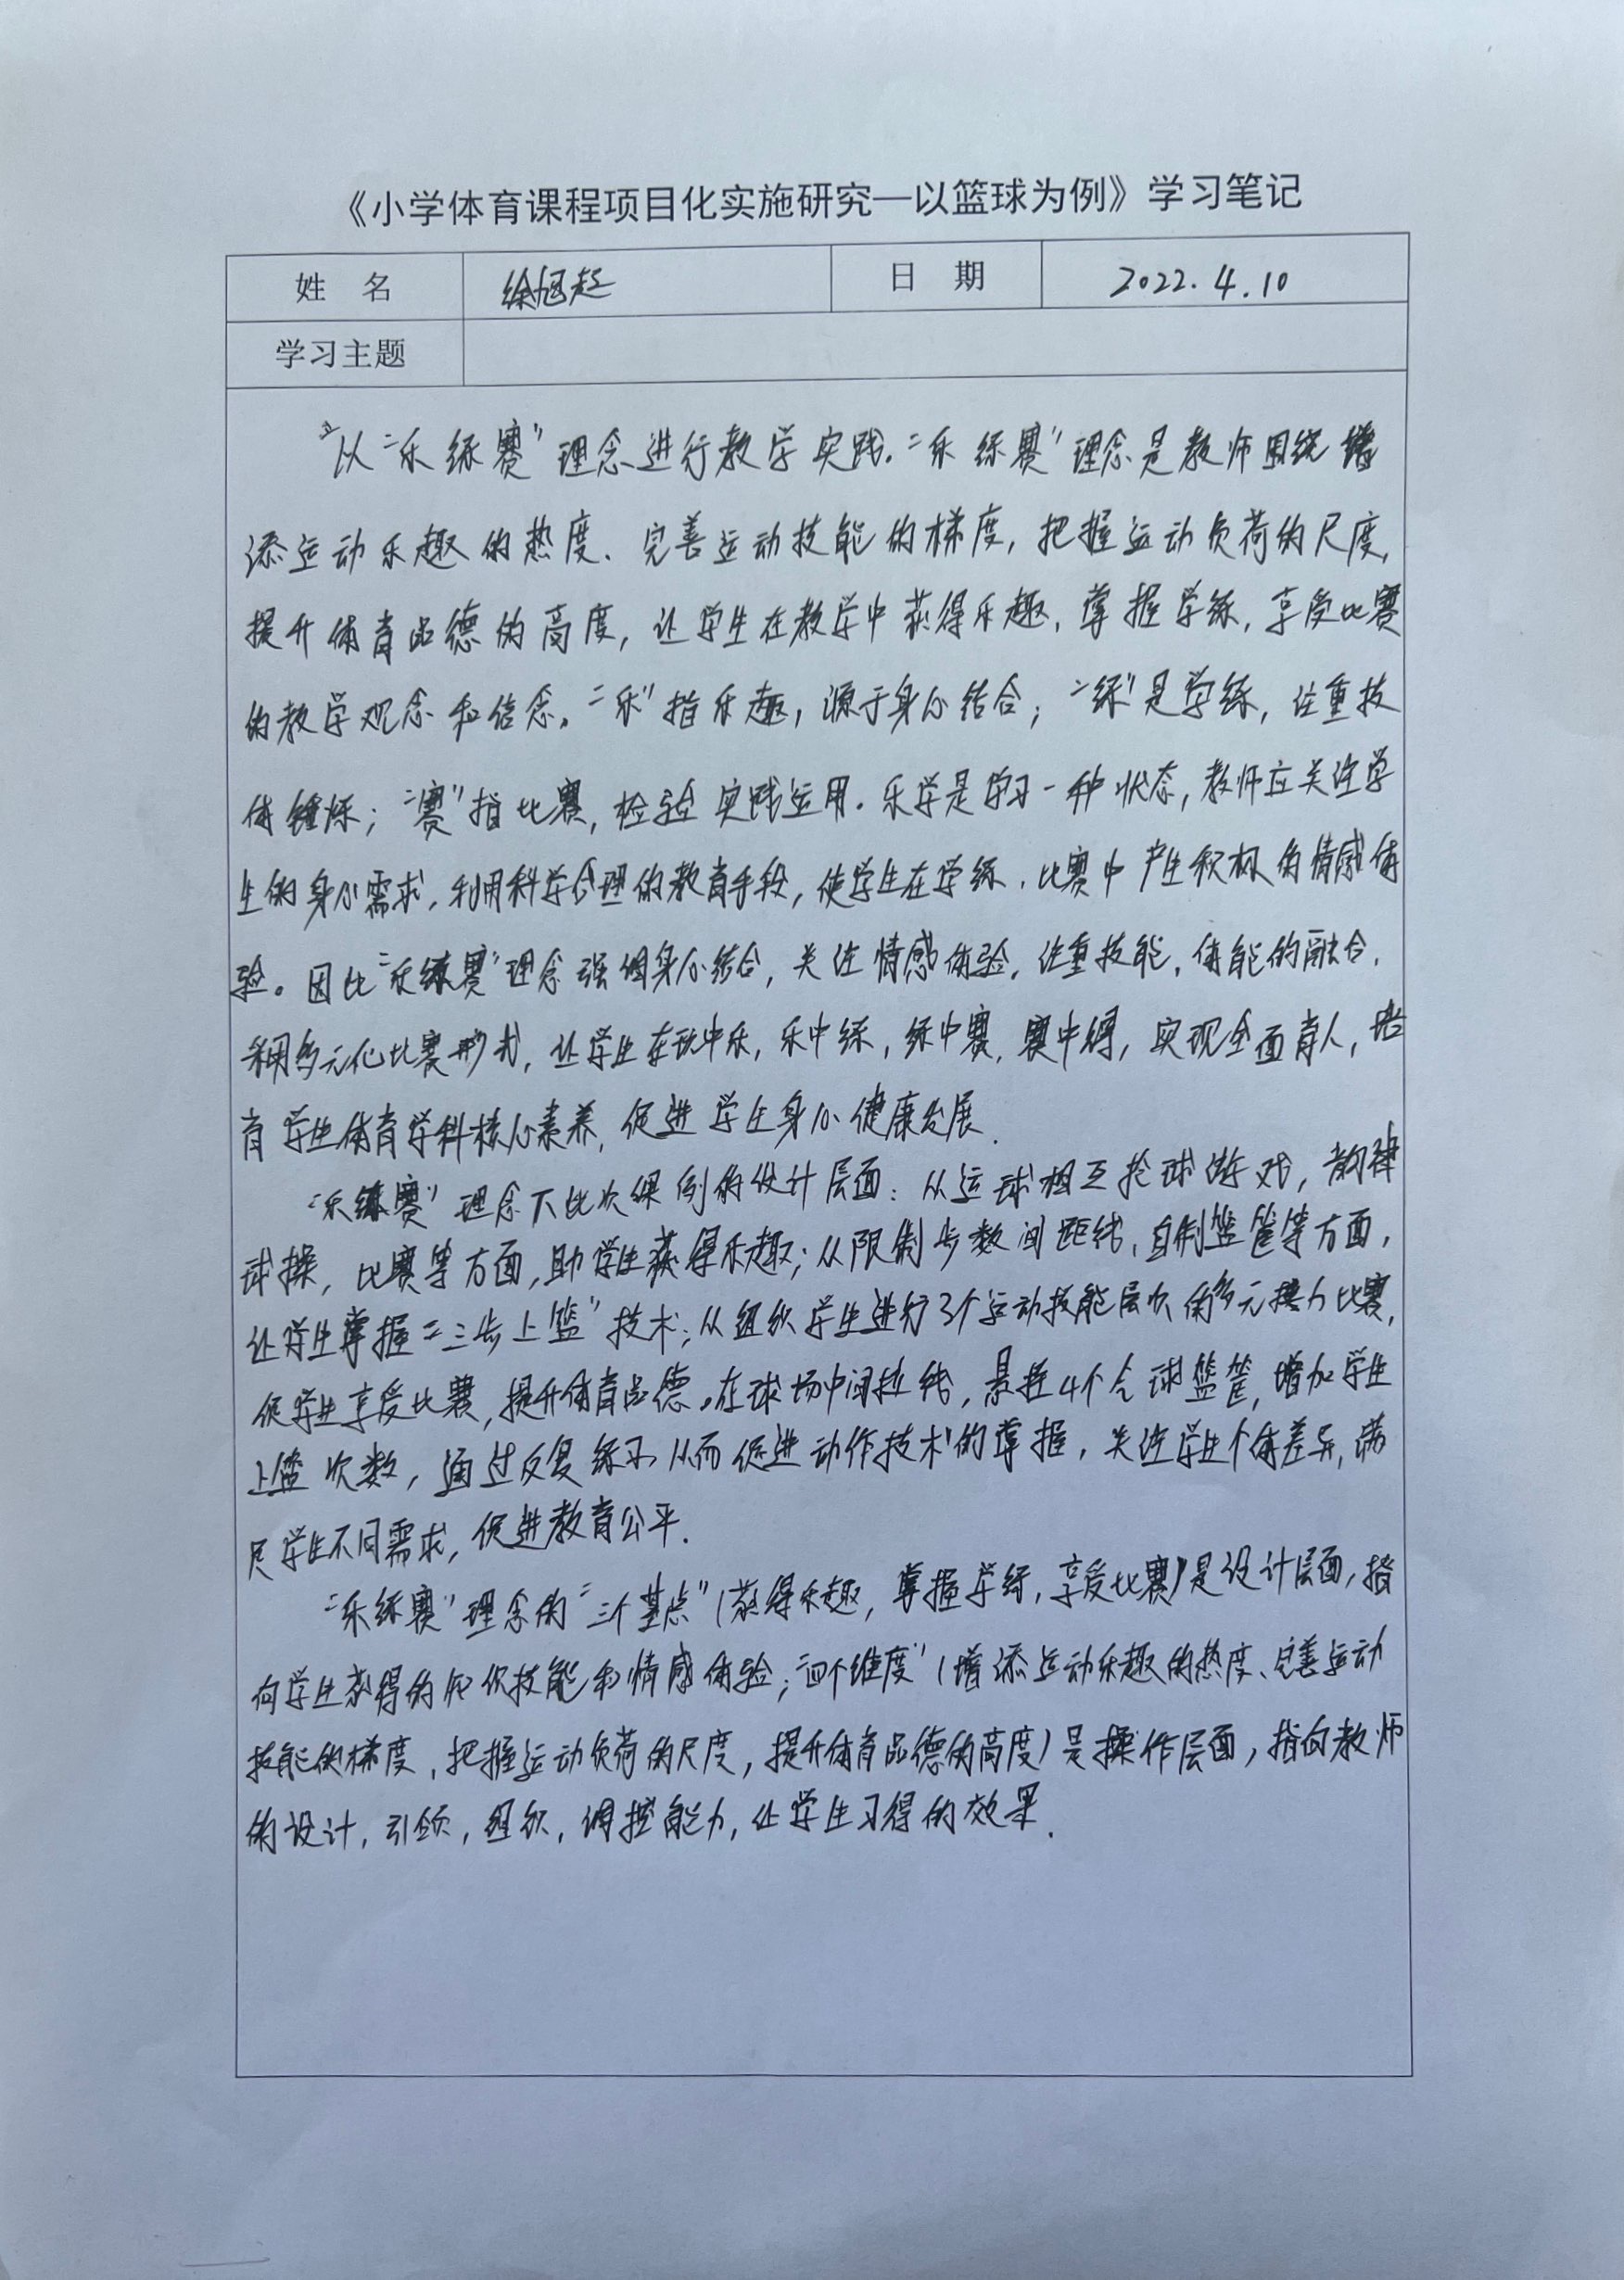 《小学体育课程项目化实施研究—以篮球为例》学习笔记
姓 名 徐旭超 日 期 2022.4.10
学习主题
以“乐练赛”理念进行教学实践.“乐练赛”理念是教师围绕增
添运动乐趣的热度、完善运动技能的梯度,把握运动负荷的尺度,
提升体育品德的高度,让学生在教学中获得乐趣,掌握学练,享受比赛
的教学观念和信念。“乐”指乐趣,源于身心结合;“练”是学练,注重技
体锤炼;“赛”指比赛,检验实践运用.乐学是学习一种状态,教师应关注学
生的身心需求,利用科学合理的教育手段,使学生在学练、比赛中产生积极的情感体
验。因此“乐练赛”理念强调身心结合,关注情感体验,注重技能,体能的融合,
利用多元化比赛形式,让学生在玩中乐,乐中练,练中赛,赛中得,实现全面育人,培
育学生体育学科核心素养,促进学生身心健康发展.
“乐练赛”理念下比次课例的设计层面:从运球相互抢球游戏,韵律
球操,比赛等方面,助学生获得乐趣;从限制步数间距线,自制篮筐等方面,
让学生掌握“三步上篮”技术;从组织学生进行3个运动技能层次的多元接力比赛,
促学生享受比赛,提升体育品德。在球场中间拉线,悬挂4个气球篮筐,增加学生
上篮次数,通过反复练习,从而促进动作技术的掌握,关注学生个体差异,满
足学生不同需求,促进教育公平.
“乐练赛”理念的“三个基点”(获得乐趣,掌握学练,享受比赛)是设计层面,指
向学生获得的知识技能和情感体验;“四个维度”(增添运动乐趣的热度、完善运动
技能的梯度,把握运动负荷的尺度,提升体育品德的高度)是操作层面,指向教师
的设计,引领,组织,调控能力,让学生习得的效果.